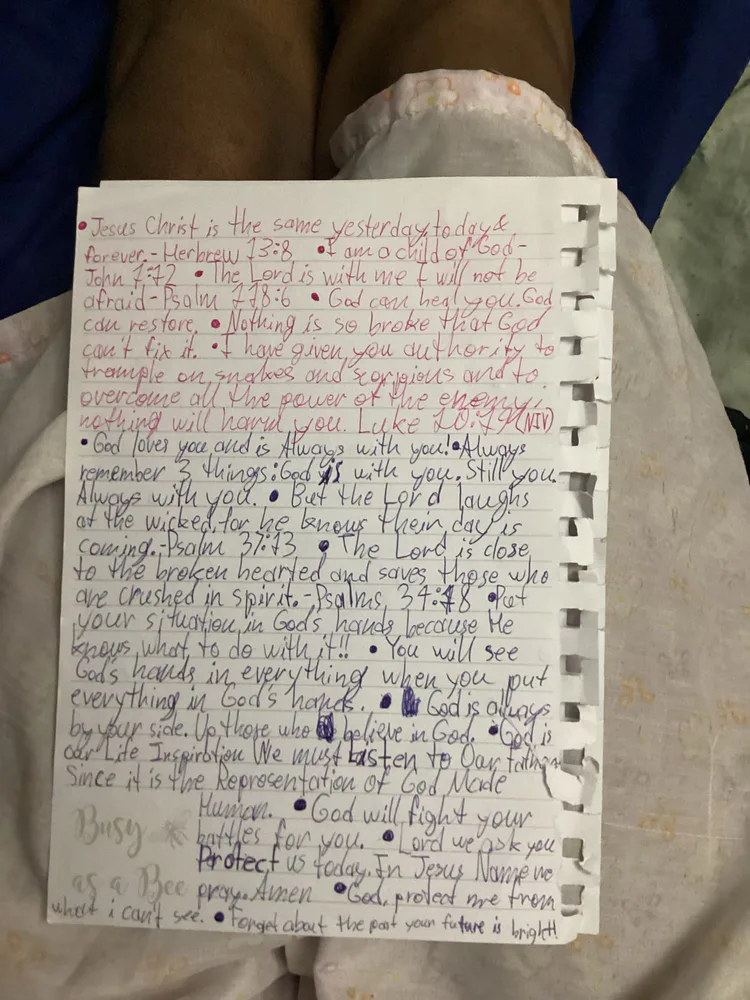 • Jesus Christ is the same yesterday, today &
forever. - Herbrew 13:8 • I am a child of God -
John 1:12 • The Lord is with me I will not be
afraid - Psalm 118:6 • God can heal you. God
can restore. • Nothing is so broke that God
can't fix it. • I have given you authority to
trample on snakes and scorpions and to
overcome all the power of the enemy;
nothing will harm you. Luke 10:19 (NIV)
• God loves you and is Always with you! • Always
remember 3 things: God is with you. Still you.
Always with you. • But the Lord laughs
at the wicked, for he knows their day is
coming. - Psalm 37:13 • The Lord is close
to the broken hearted and saves those who
are crushed in spirit. - Psalms 34:18 • Put
your situation in God's hands because He
knows what to do with it!! • You will see
God's hands in everything when you put
everything in God's hands. • God is always
by your side. Up those who believe in God. • God is
our Life Inspiration We must Listen to Our father
Since it is the Representation of God Made
Human. • God will fight your
battles for you. • Lord we ask you
Protect us today. In Jesus Name we
pray. Amen • God, protect me from
what i can't see. • Forget about the past your future is bright!
Busy
as a Bee